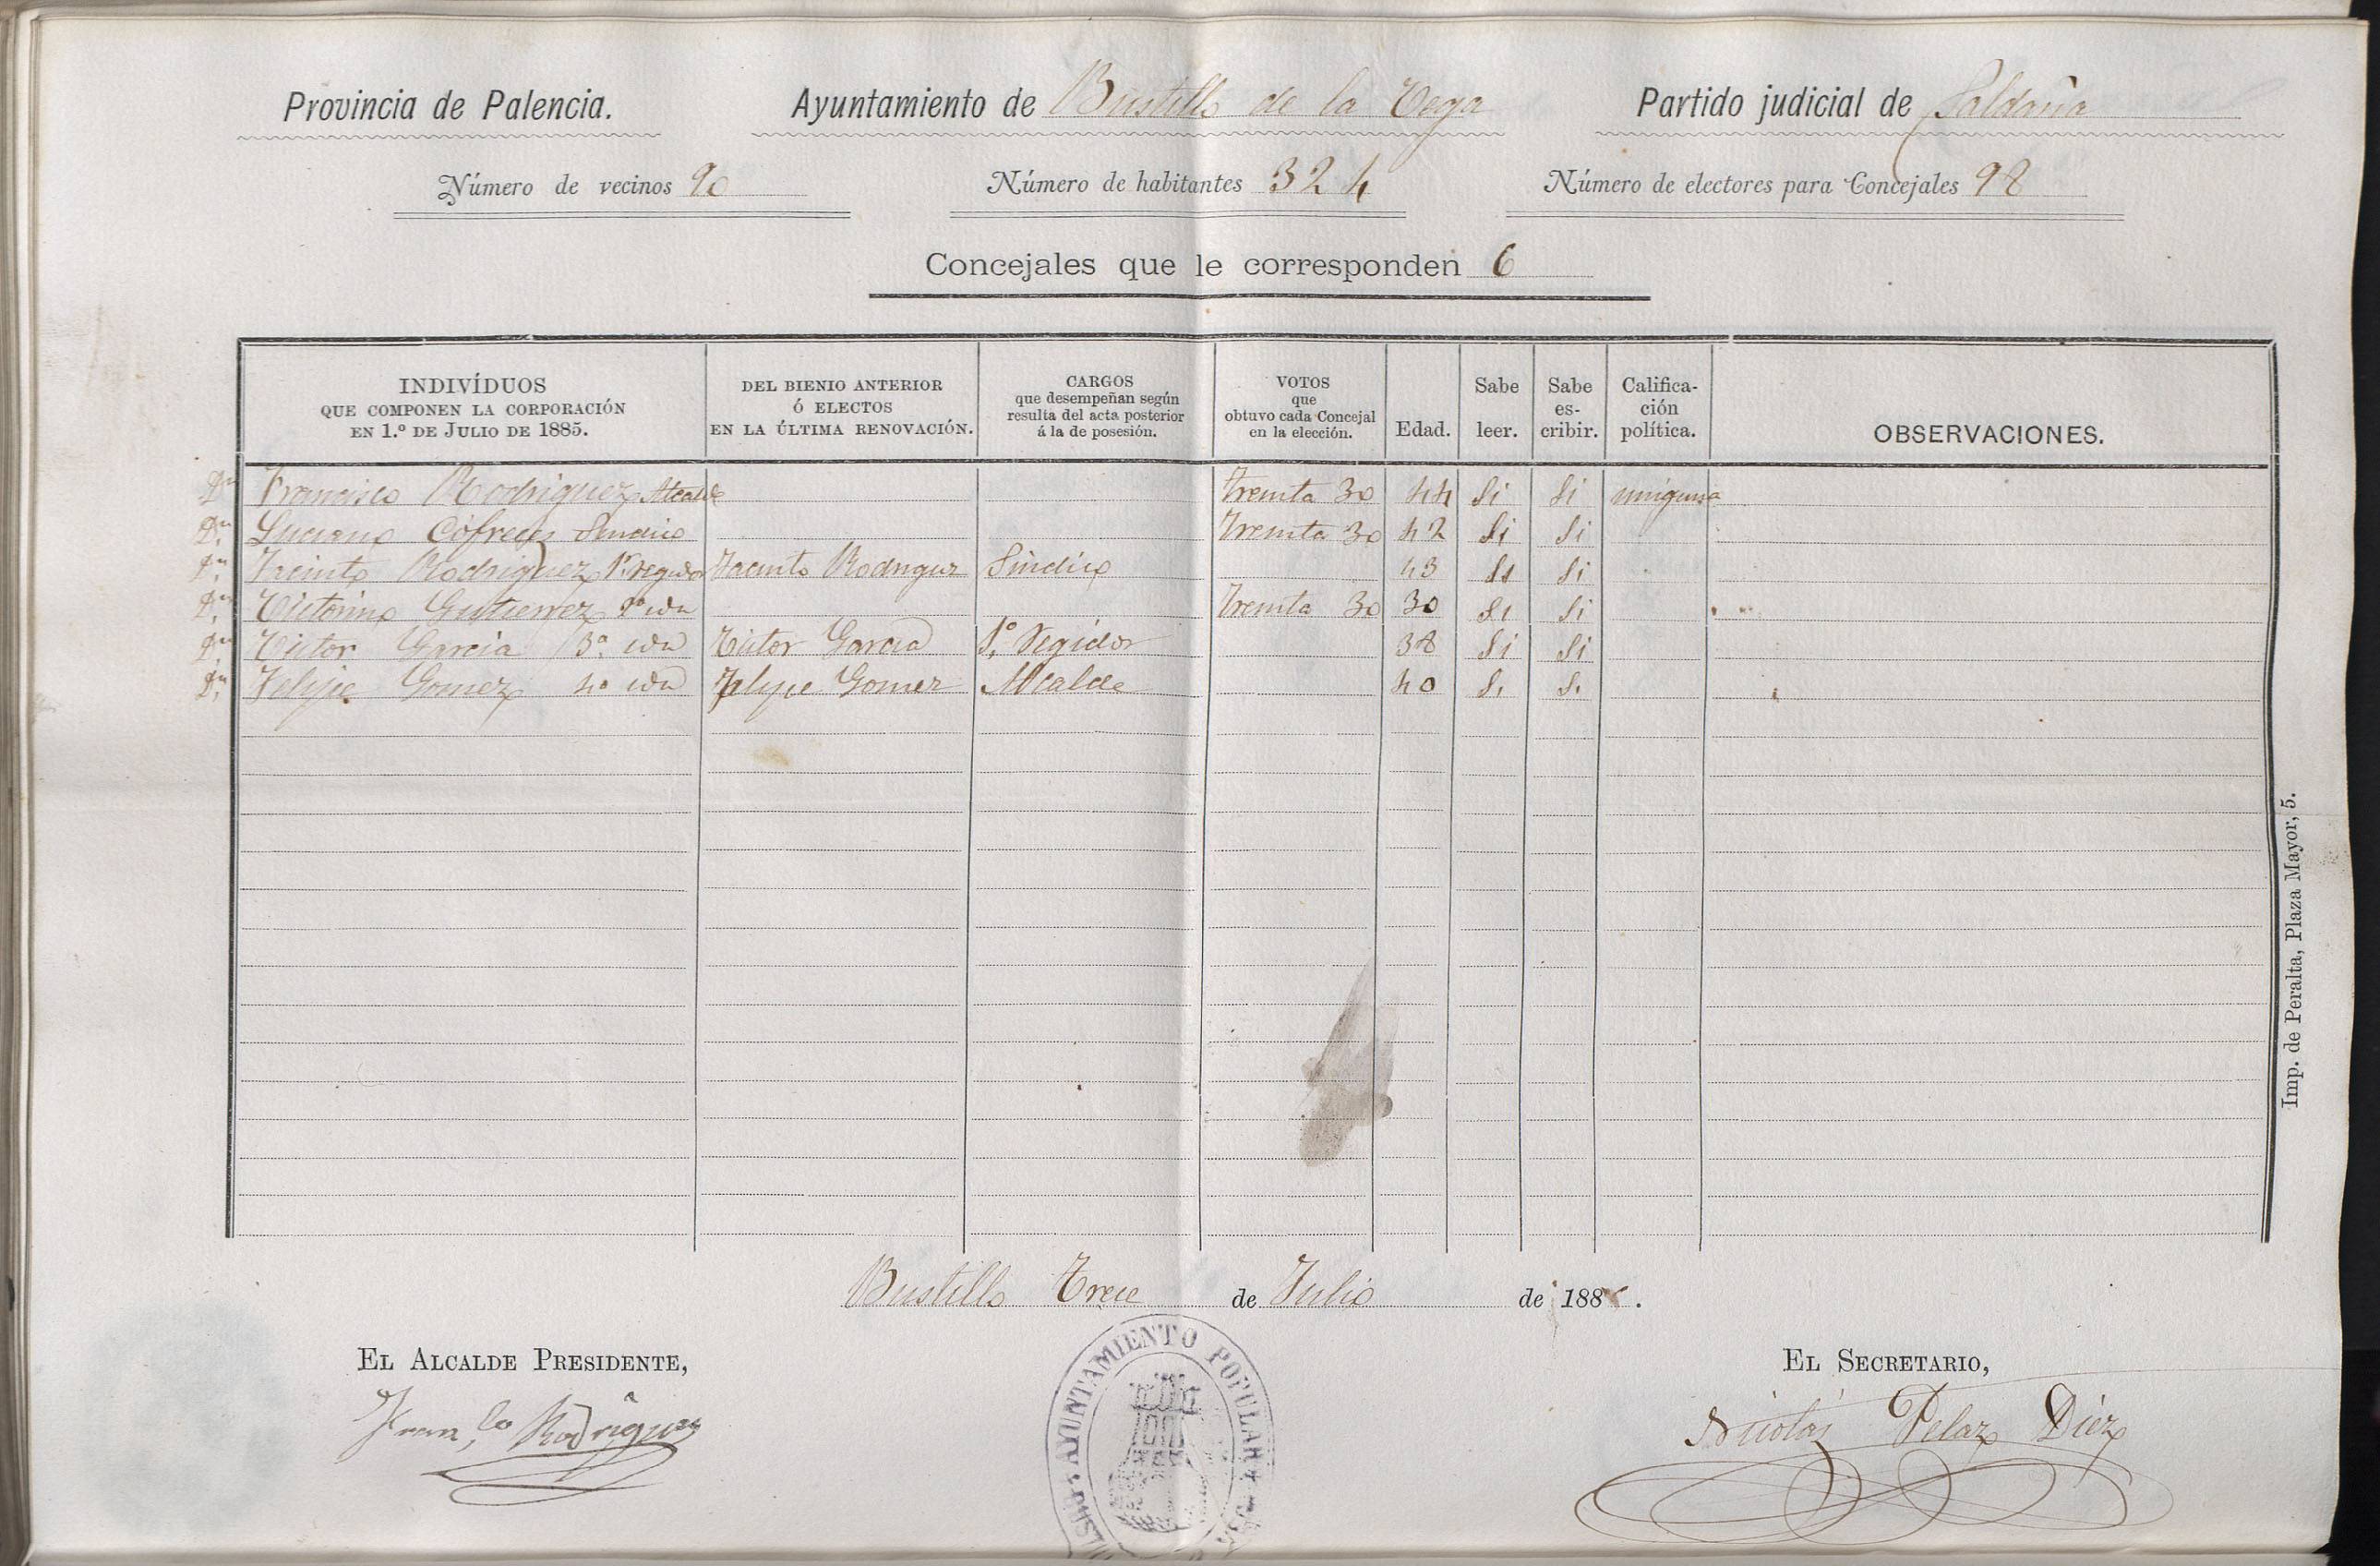 Provincia de Palencia. Ayuntamiento de Bustillo de la Vega Partido judicial de Saldaña
Número de vecinos 90 Número de habitantes 324 Número de electores para Concejales 98
Concejales que le corresponden 6
INDIVÍDUOS QUE COMPONEN LA CORPORACIÓN EN 1.º DE JULIO DE 1885.
DEL BIENIO ANTERIOR Ó ELECTOS EN LA ÚLTIMA RENOVACIÓN.
CARGOS que desempeñan según resulta del acta posterior á la de posesión.
VOTOS que obtuvo cada Concejal en la elección.
Edad.
Sabe leer.
Sabe es-cribir.
Califica-ción política.
OBSERVACIONES.
Dn Francisco Rodriguez Alcalde Treinta 30 44 Si Si ninguna
Dn Luciano Cófreces Sindico Treinta 30 42 Si Si
Dn Jacinto Rodriguez 1º regidor Jacinto Rodriguez Sindico 43 Si Si
Dn Victorino Gutierrez 2º idn Treinta 30 30 Si Si
Dn Victor Garcia 3º idn Victor Garcia 1º Regidor 38 Si Si
Dn Felipe Gomez 4º idn Felipe Gomez Alcalde 40 Si Si
Imp. de Peralta, Plaza Mayor, 5.
Bustillo Trece de Julio de 188 .
EL ALCALDE PRESIDENTE, EL SECRETARIO,
Franco Rodriguez Nicolás Pelaz Diez
AYUNTAMIENTO POPULAR